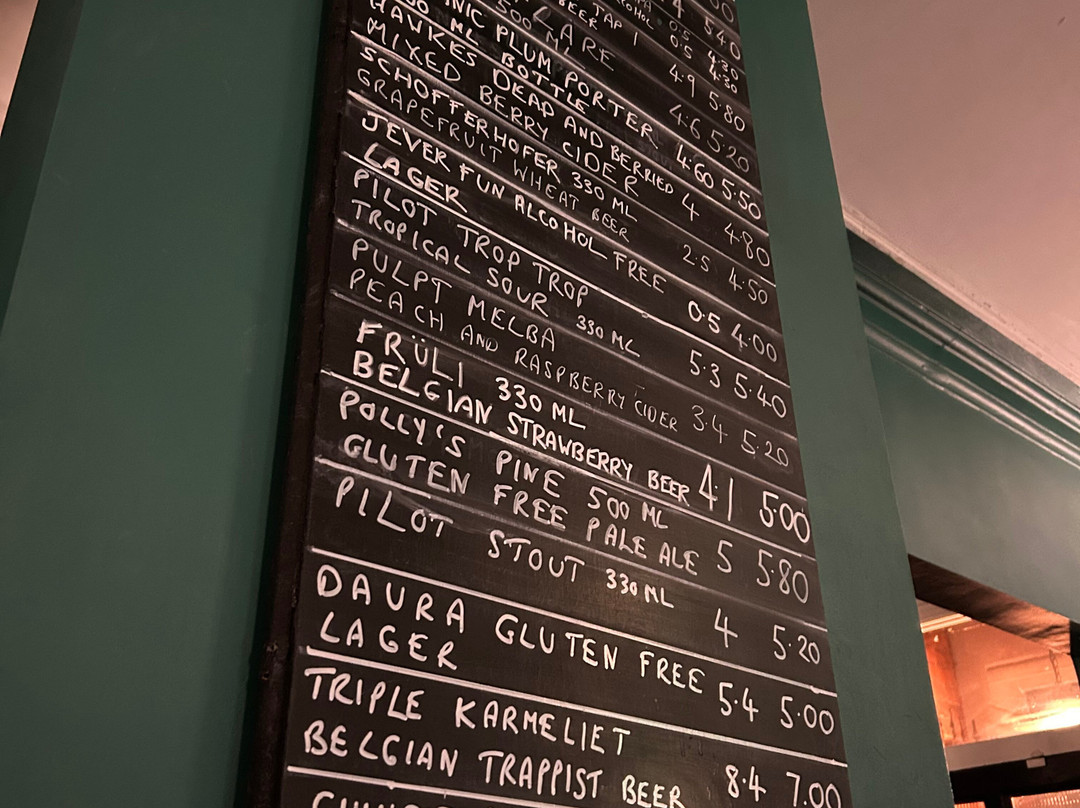 5.40
TAP 1
BEER
ALCOHOL 0.5 4.30
0.5 4.30
500 ML
PLUM PORTER 4.9 5.80
ML BOTTLE 4.6 5.20
HAWKES DEAD AND BERRIED
MIXED BERRY CIDER 4.60 5.50
SCHOFFERHOFER 330 ML 4 4.80
GRAPEFRUIT WHEAT BEER 2.5 4.50
JEVER FUN ALCOHOL FREE
LAGER 0.5 4.00
PILOT TROP TROP
TROPICAL SOUR 330 ML 5.3 5.40
PULPT MELBA
PEACH AND RASPBERRY CIDER 3.4 5.20
FRÜLI 330 ML
BELGIAN STRAWBERRY BEER 4.1 5.00
POLLY'S PINE 500 ML
GLUTEN FREE PALE ALE 5 5.80
PILOT STOUT 330 ML 4 5.20
DAURA GLUTEN FREE
LAGER 5.4 5.00
TRIPLE KARMELIET
BELGIAN TRAPPIST BEER 8.4 7.00